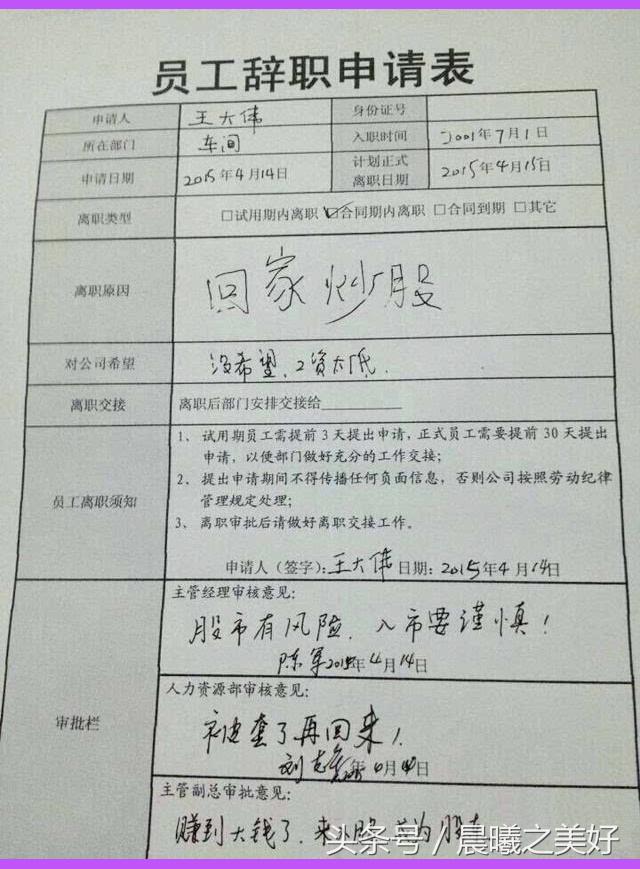 员工辞职申请表
申请人 王大伟 身份证号
所在部门 车间 入职时间 2001年7月1日
申请日期 2015年4月14日 计划正式离职日期 2015年4月15日
离职类型 □试用期内离职 ☑合同期内离职 □合同到期 □其它
离职原因 回家炒股
对公司希望 没希望、工资太低.
离职交接 离职后部门安排交接给
员工离职须知
1、试用期员工需提前3天提出申请,正式员工需要提前30天提出
申请,以便部门做好充分的工作交接;
2、提出申请期间不得传播任何负面信息,否则公司按照劳动纪律
管理规定处理;
3、离职审批后请做好离职交接工作。
申请人(签字):王大伟 日期:2015年4月14日
审批栏
主管经理审核意见:
股市有风险、入市要谨慎!
陈军 2015年4月14日
人力资源部审核意见:
被套了再回来!
刘 年 月 日
主管副总审批意见:
赚到大钱了、来入股
头条号/晨曦之美好